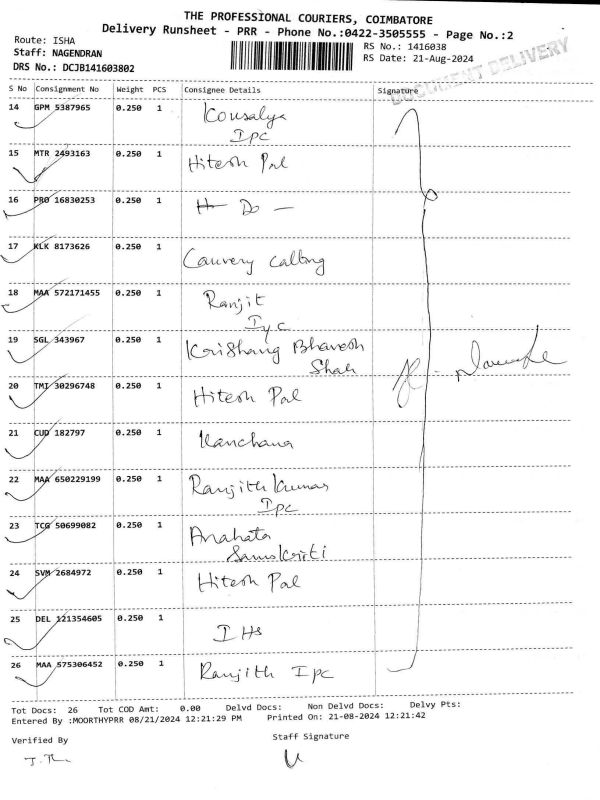 THE PROFESSIONAL COURIERS, COIMBATORE
Delivery Runsheet - PRR - Phone No.:0422-3505555 - Page No.:2
Route: ISHA
RS No.: 1416038
Staff: NAGENDRAN
RS Date: 21-Aug-2024
DRS No.: DCJB141603802
DOCUMENT DELIVERY
S No Consignment No Weight PCS Consignee Details Signature
14 GPM 5387965 0.250 1 Kousalya
IPC
15 MTR 2493163 0.250 1 Hitesh Pal
16 PRO 16830253 0.250 1 Do -
17 KLK 8173626 0.250 1 Cauvery calling
18 MAA 572171455 0.250 1 Ranjit
IYC
19 SGL 343967 0.250 1 Krishang Bhavesh
Shah
20 TMI 30296748 0.250 1 Hitesh Pal
21 CUD 182797 0.250 1 Kanchana
22 MAA 650229199 0.250 1 Ranjith Kumar
IPC
23 TCG 50699082 0.250 1 Anahata
Samskriti
24 SVM 2684972 0.250 1 Hitesh Pal
25 DEL 121354605 0.250 1 IHS
26 MAA 575306452 0.250 1 Ranjith IPC
Tot Docs: 26 Tot COD Amt: 0.00 Delvd Docs: Non Delvd Docs: Delvy Pts:
Entered By :MOORTHYPRR 08/21/2024 12:21:29 PM Printed On: 21-08-2024 12:21:42
Verified By Staff Signature